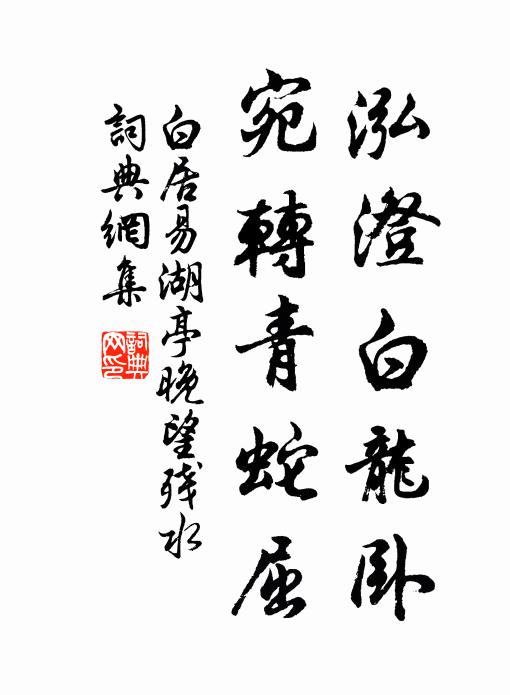 泓澄白龍卧
宛轉青蛇屈
白居易湖亭晚望残水
詞典網集
詞典網印